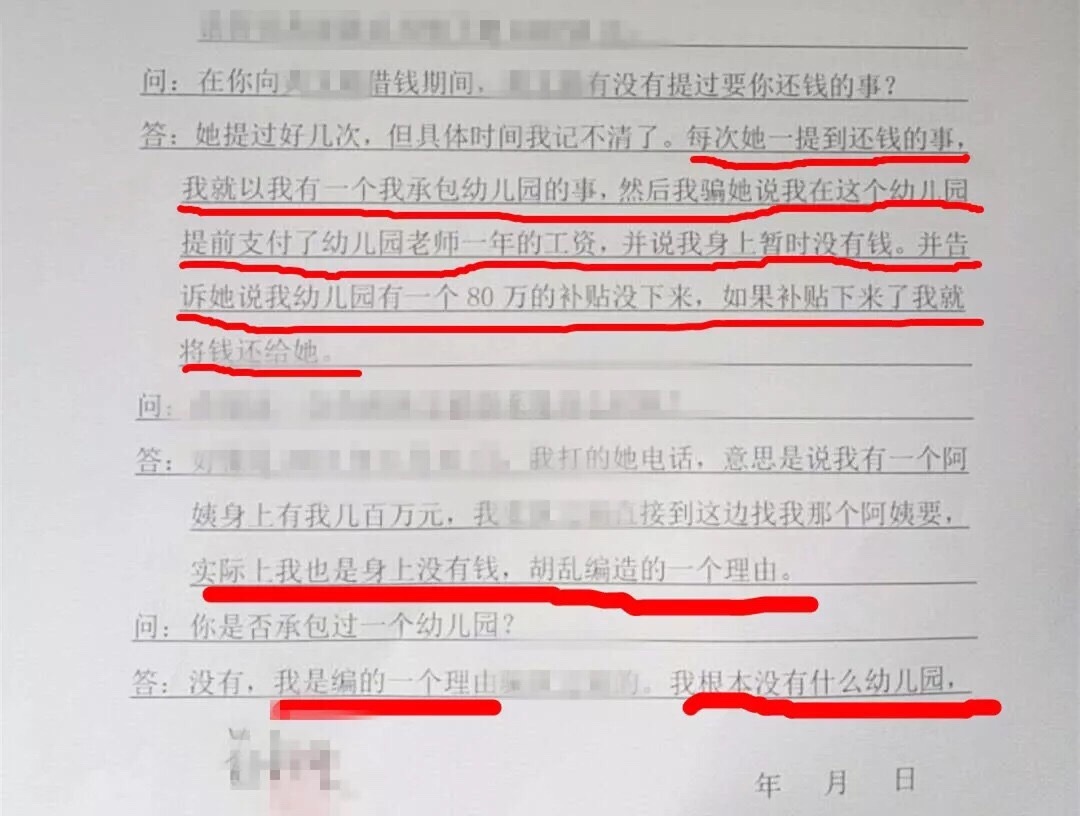 问：在你向借钱期间，有没有提过要你还钱的事？
答：她提过好几次，但具体时间我记不清了。每次她一提到还钱的事，
我就以我有一个我承包幼儿园的事，然后我骗她说我在这个幼儿园
提前支付了幼儿园老师一年的工资，并说我身上暂时没有钱。并告
诉她说我幼儿园有一个 80 万的补贴没下来，如果补贴下来了我就
将钱还给她。
问：
答：我打的她电话，意思是说我有一个阿
姨身上有我几百万元，我直接到这边找我那个阿姨要，
实际上我也是身上没有钱，胡乱编造的一个理由。
问：你是否承包过一个幼儿园？
答：没有，我是编的一个理由的。我根本没有什么幼儿园，
年 月 日